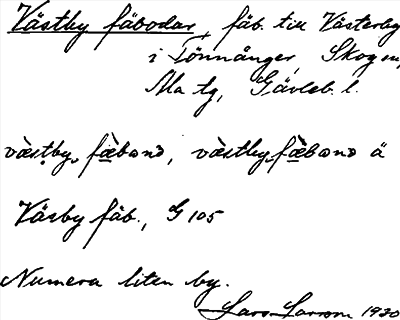 Västby fäbodar, fäb. till Västerby
i Tönnånger, Skog sn,
Ala tg, Gävleb. l.
væstby fæbωnɔ, væstby fæbωnɔ ä
Väsby fäb., G 105
Numera liten by.
Lars Larsson 1930